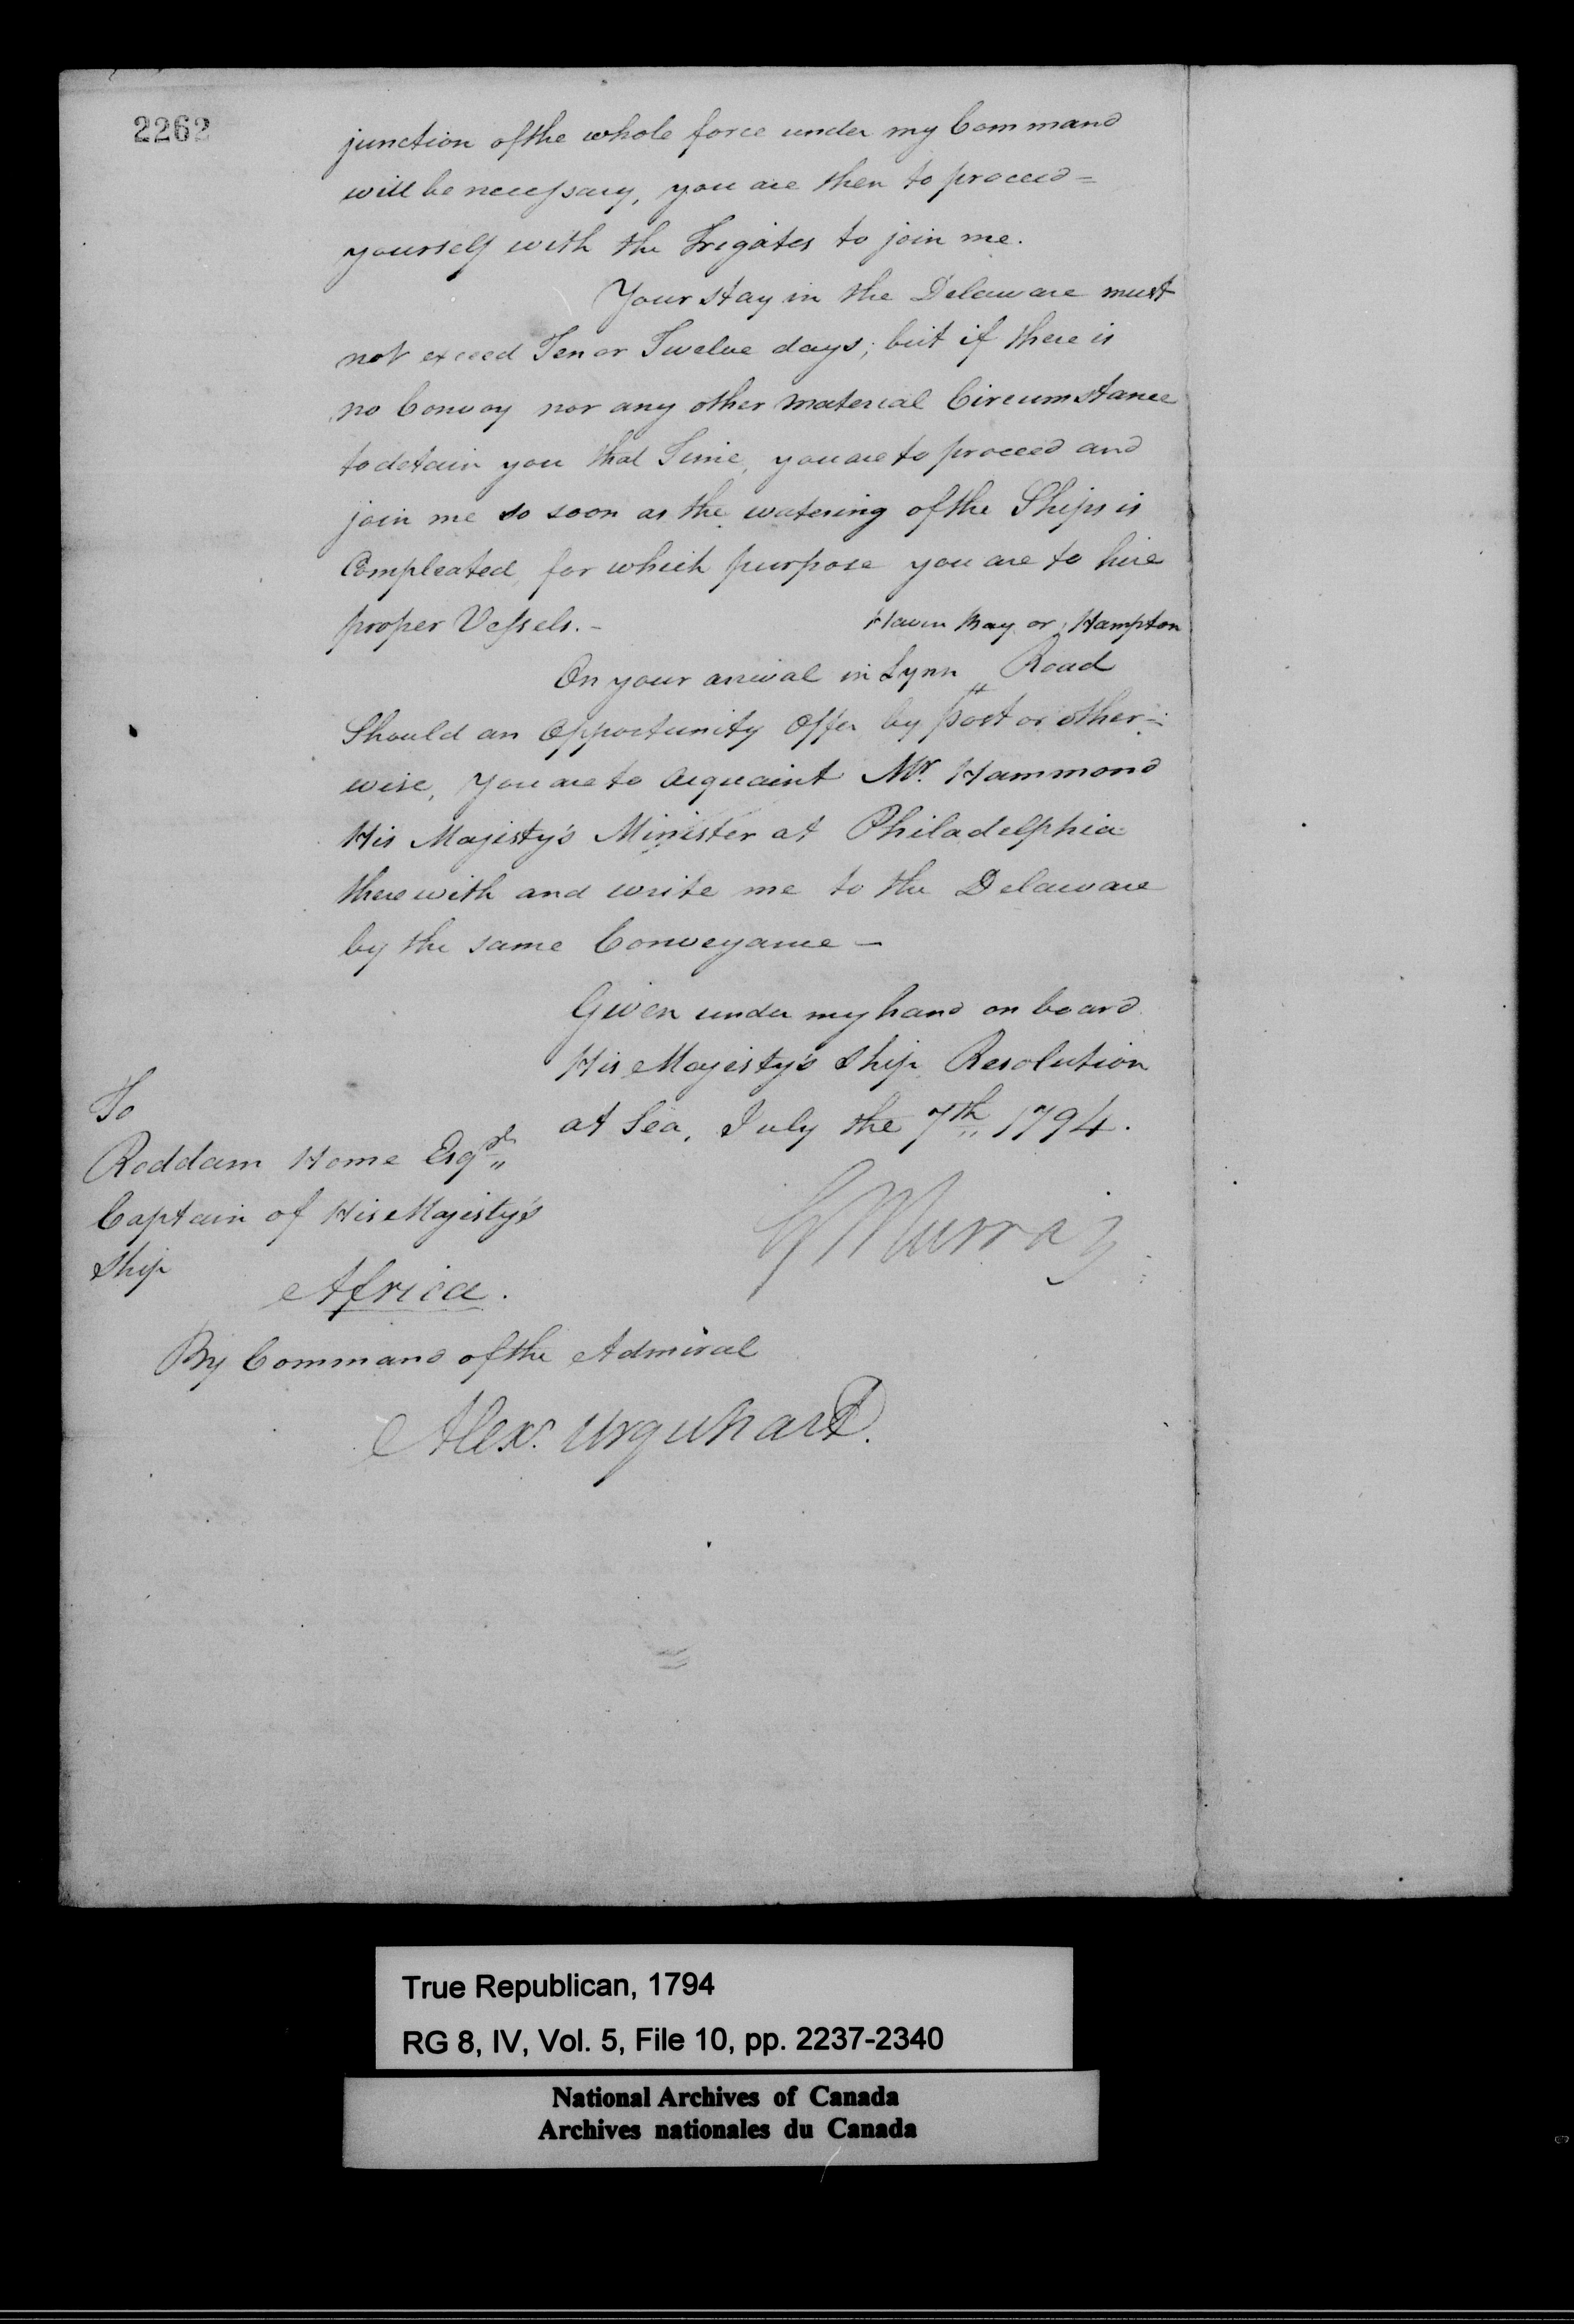 2262
junction of the whole force under my Command
will be necessary, you are then to proceed =
yourself with the Frigates to join me.
Your stay in the Delaware must
not exceed Ten or Twelve days; but if there is
no Convoy nor any other material Circumstance
to detain you that Time, you are to proceed and
join me so soon as the watering of the Ships is
Compleated, for which purpose you are to hire
proper Vessels. -
Haven Bay or Hampton
On your arrival in Lynn " Road
Should an Opportunity Offer by post or other-
wise, You are to acquaint Mr. Hammond
His Majesty's Minister at Philadelphia
therewith and write me to the Delaware
by the same Conveyance —
Given under my hand on board
His Majesty's Ship Resolution
at Sea, July the 7th 1794.
To
Roddam Home Esqre
Captain of His Majesty's
Ship
Africa.
G Murray
By Command of the Admiral
Alexr. Urquhart.
True Republican, 1794
RG 8, IV, Vol. 5, File 10, pp. 2237-2340
National Archives of Canada
Archives nationales du Canada